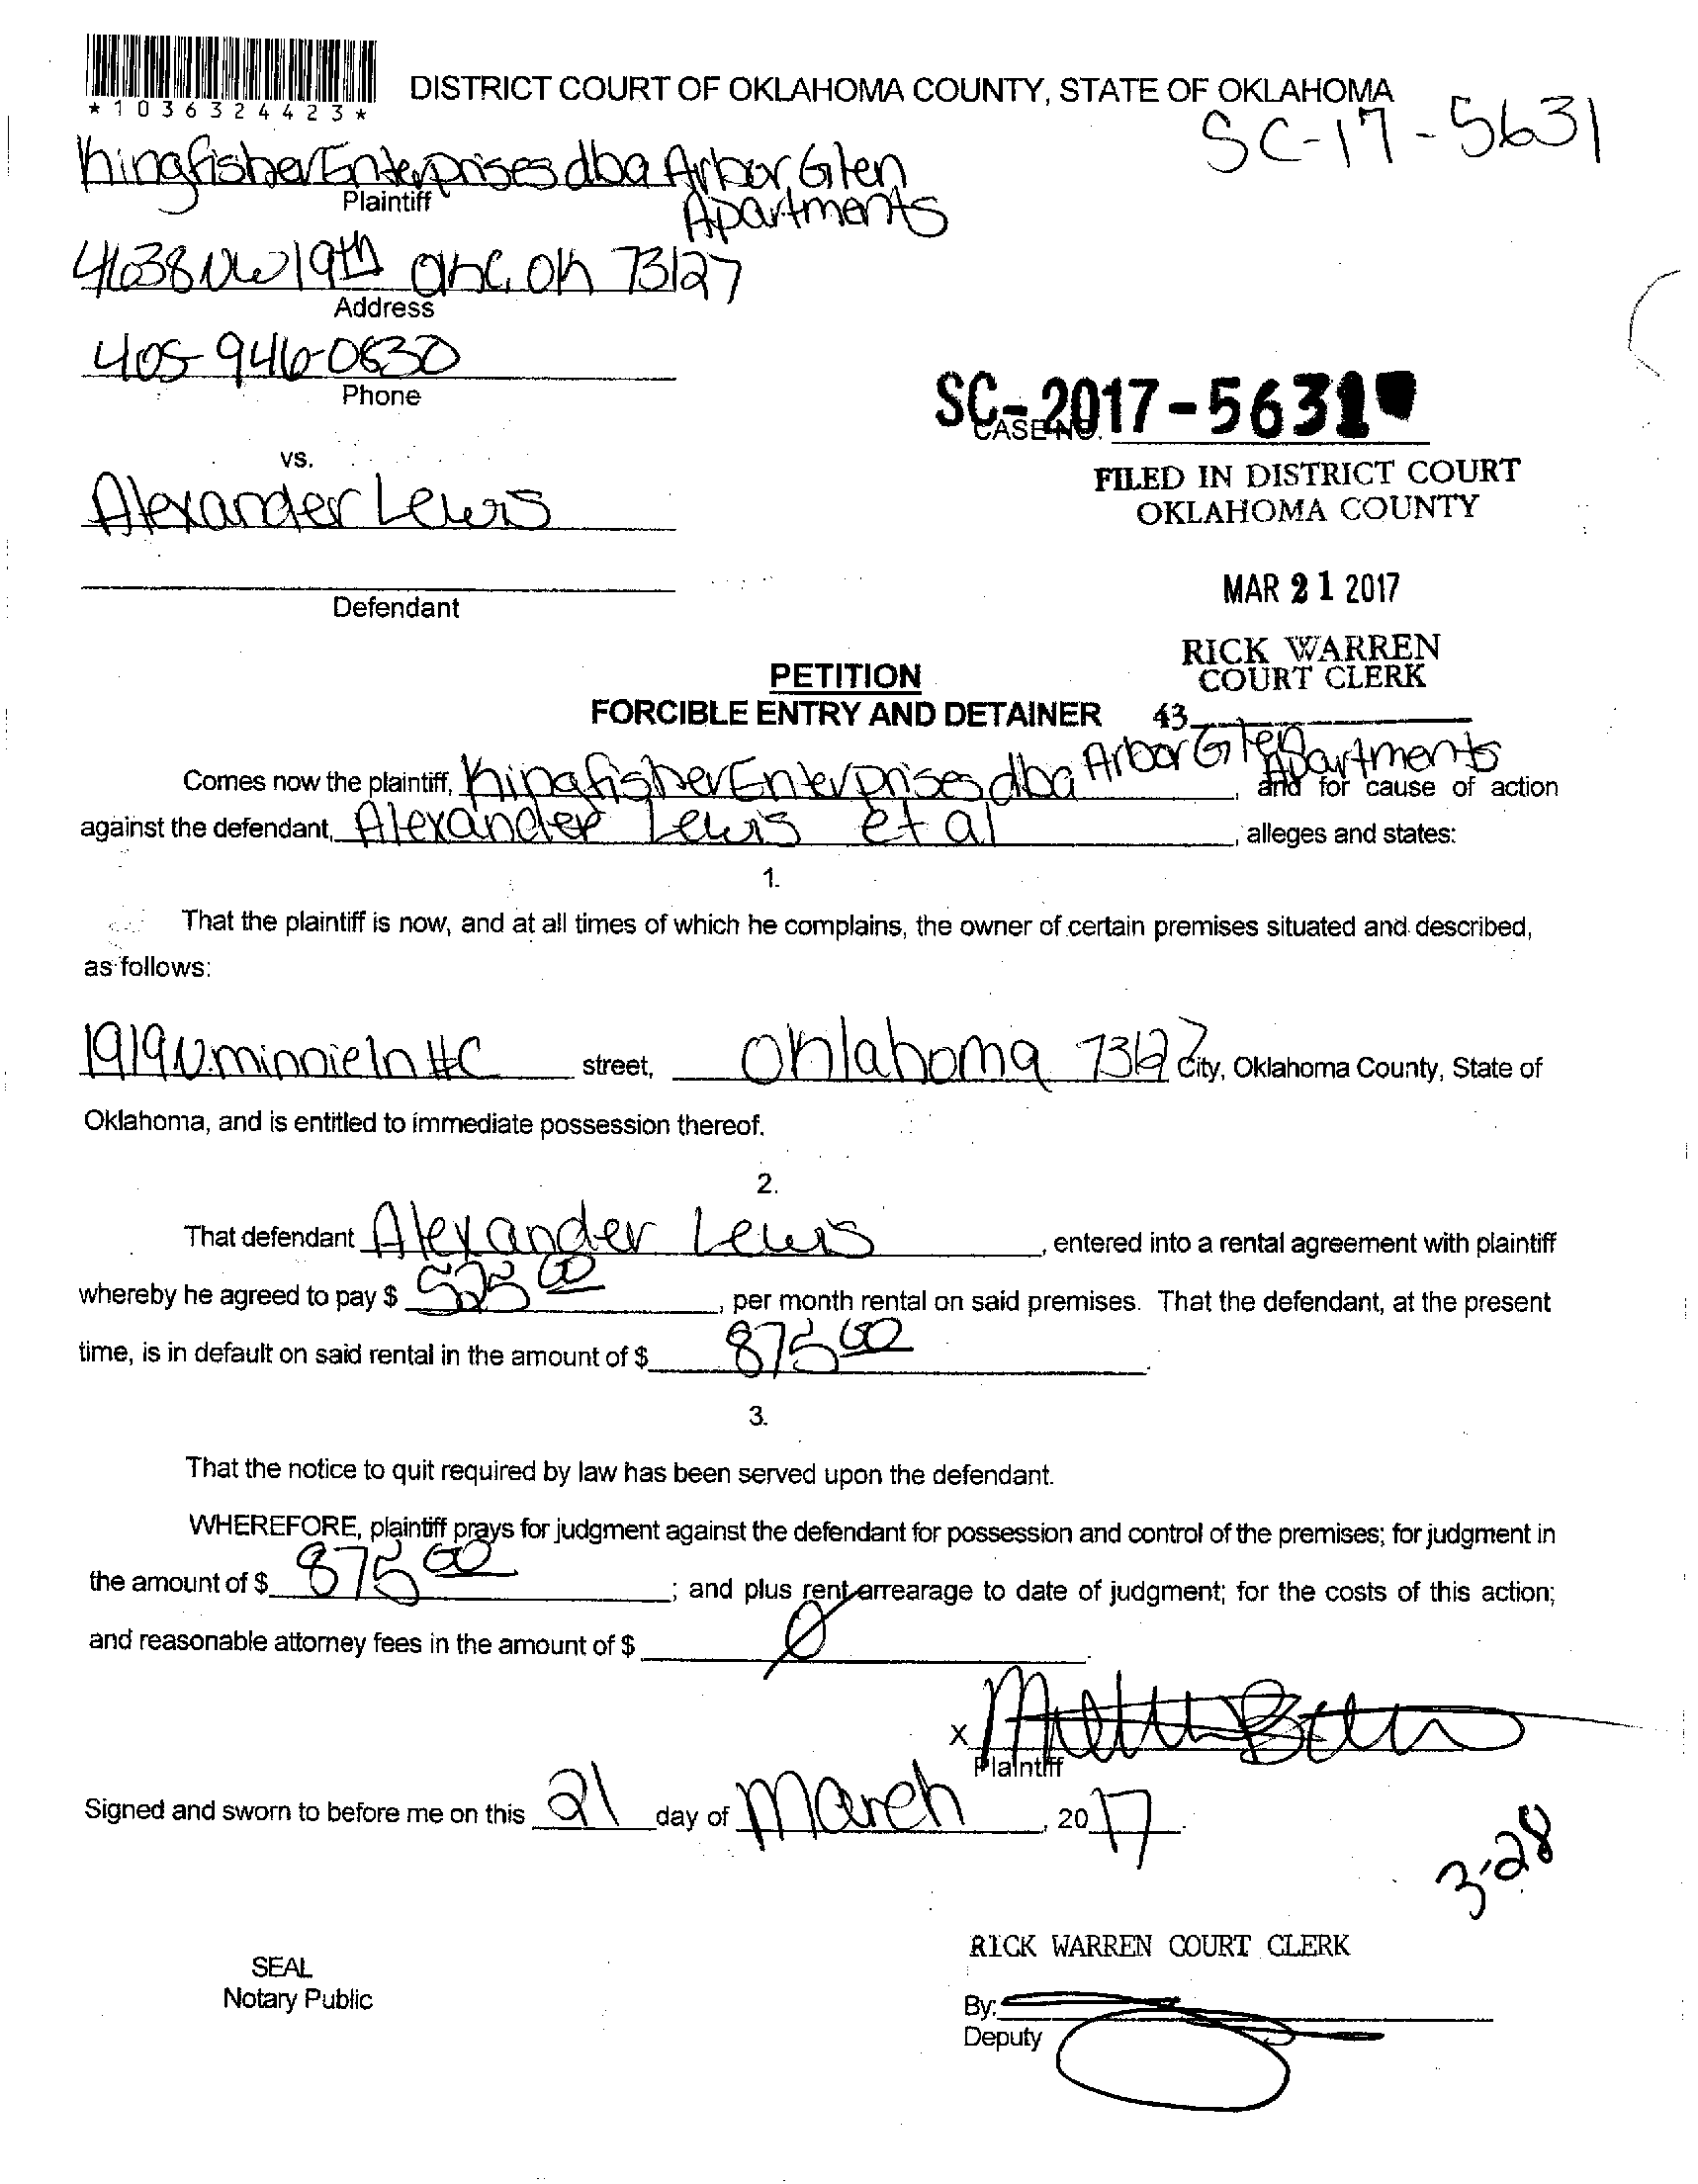 *1036324423*
DISTRICT COURT OF OKLAHOMA COUNTY, STATE OF OKLAHOMA
SC-17-5631
Kingfisher Enterprises dba Arbor Glen
Apartments
Plaintiff
4638 NW 19th OKC, OK 73127
Address
405-946-0630
Phone
SC-2017-5631
CASE NO.
vs.
FILED IN DISTRICT COURT
OKLAHOMA COUNTY
Alexander Lewis
MAR 21 2017
Defendant
RICK WARREN
COURT CLERK
PETITION
FORCIBLE ENTRY AND DETAINER
43
Comes now the plaintiff, Kingfisher Enterprises dba Arbor Glen Apartments, and for cause of action
against the defendant, Alexander Lewis et al, alleges and states:
1.
That the plaintiff is now, and at all times of which he complains, the owner of certain premises situated and described,
as follows:
1919 N. minnie ln #C street, Oklahoma 73127 City, Oklahoma County, State of
Oklahoma, and is entitled to immediate possession thereof.
2.
That defendant Alexander Lewis, entered into a rental agreement with plaintiff
whereby he agreed to pay $ 525 00, per month rental on said premises. That the defendant, at the present
time, is in default on said rental in the amount of $ 875 00.
3.
That the notice to quit required by law has been served upon the defendant.
WHEREFORE, plaintiff prays for judgment against the defendant for possession and control of the premises; for judgment in
the amount of $ 875 00; and plus rent arrearage to date of judgment; for the costs of this action;
and reasonable attorney fees in the amount of $ 0.
X
Plaintiff
Signed and sworn to before me on this 21 day of March, 2017.
3-28
RICK WARREN COURT CLERK
SEAL
Notary Public
By:
Deputy